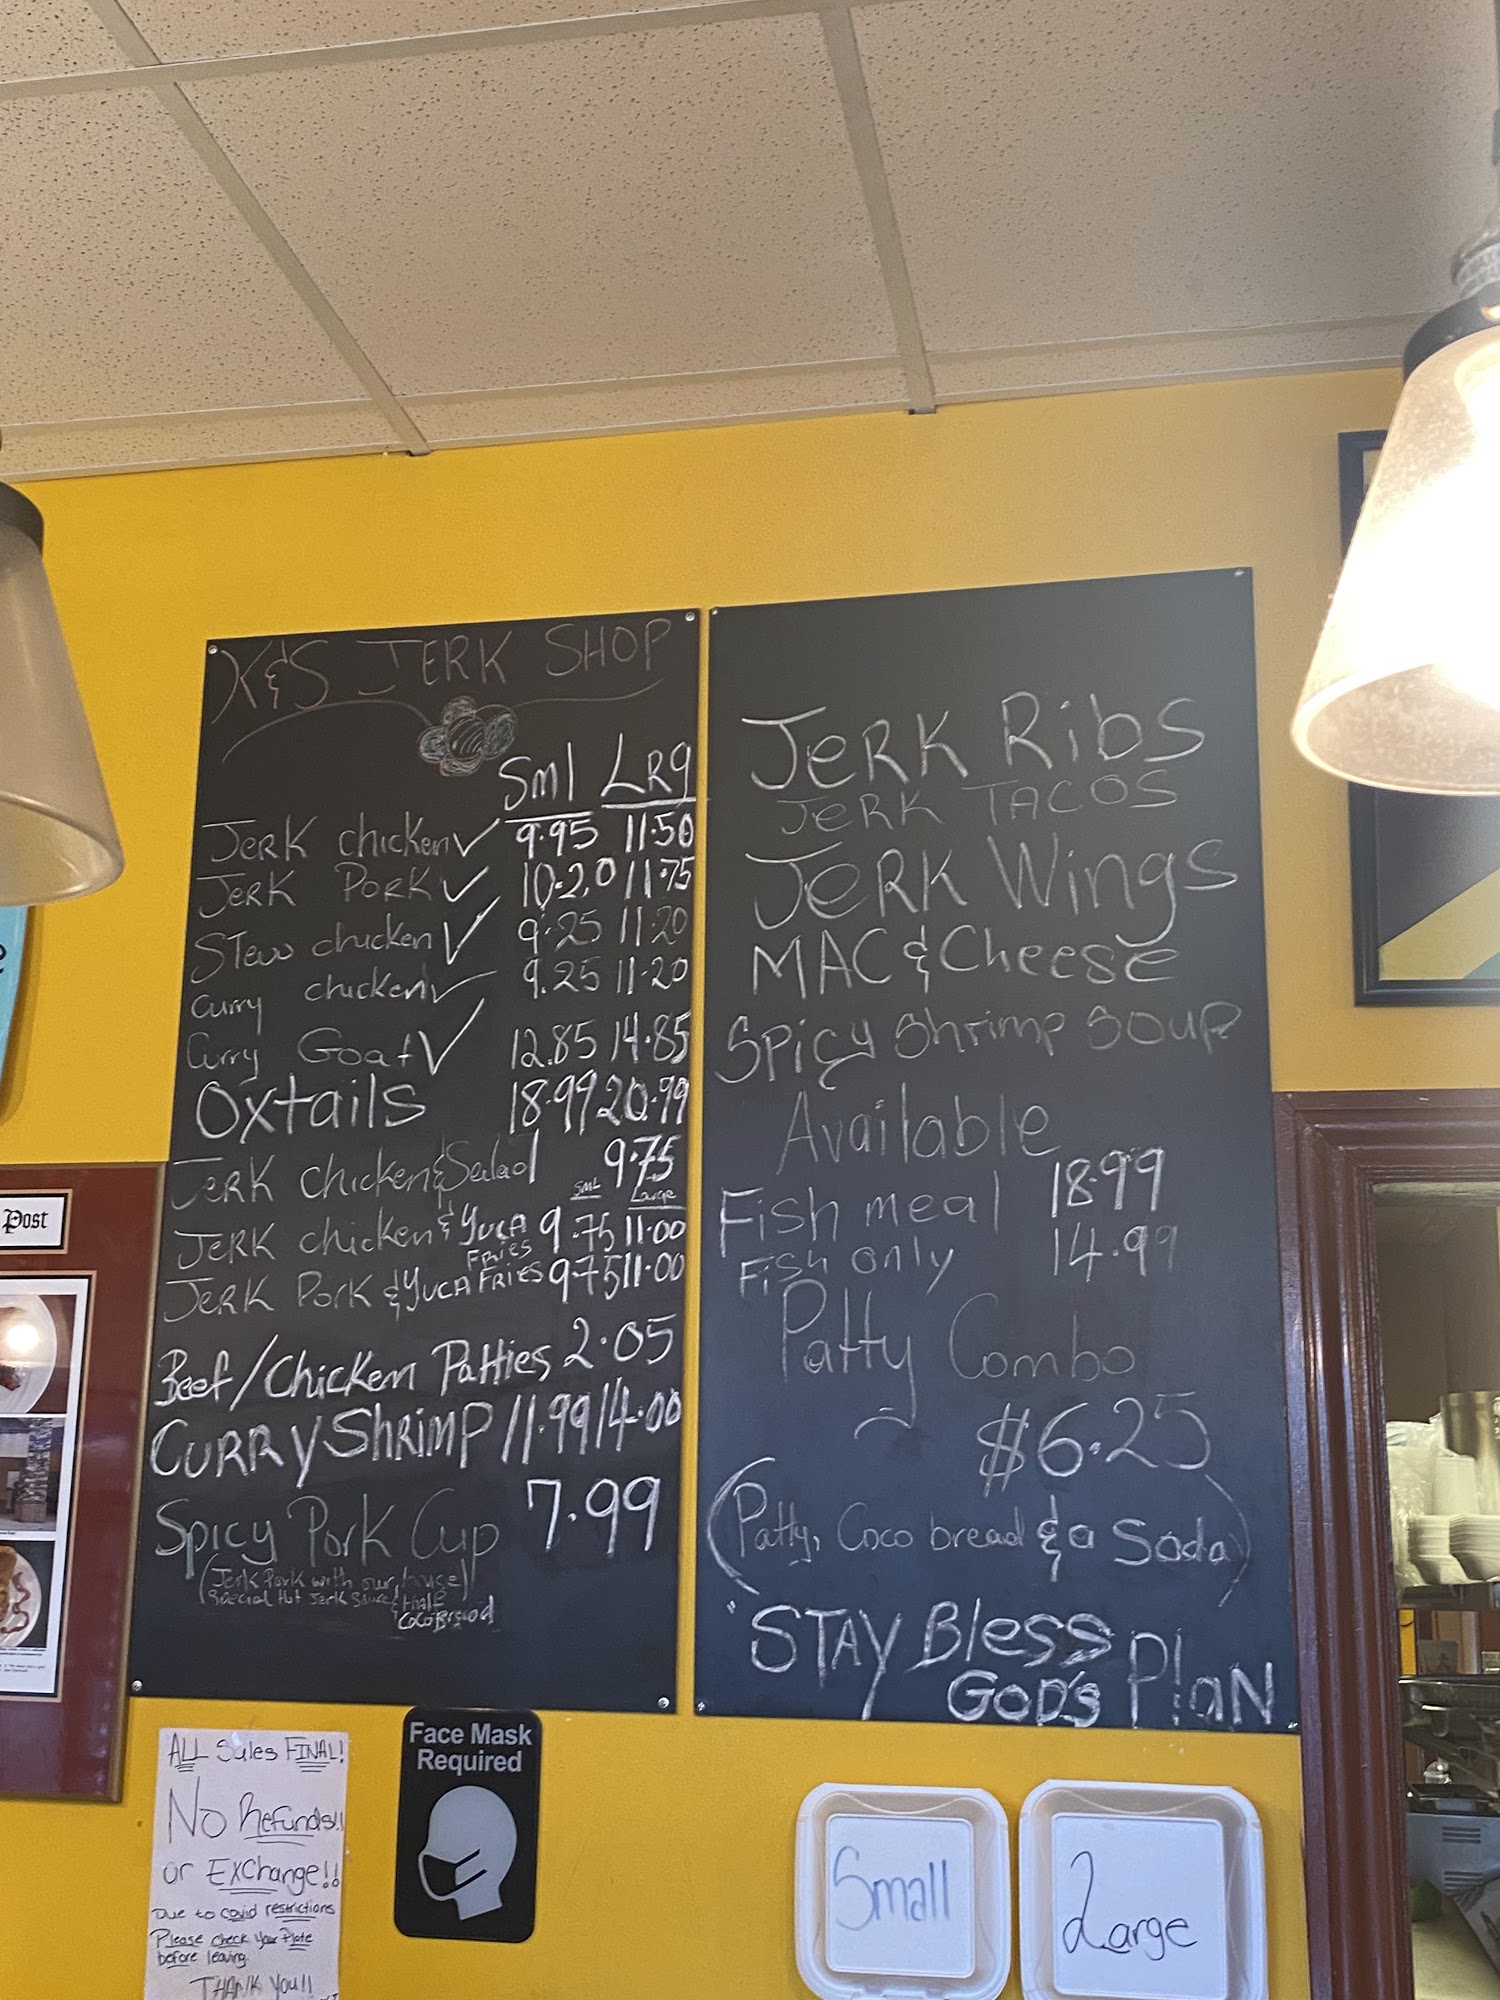 K&S JERK SHOP
Sml LRg
JERK chicken ✓ 9.95 11.50
JERK PORK ✓ 10.20 11.75
Stew chicken ✓ 9.25 11.20
Curry chicken ✓ 9.25 11.20
Curry Goat ✓ 12.85 14.85
Oxtails 18.99 20.99
JERK chicken & Salad 9.75
SML Large
JERK chicken & YUCA FRIES 9.75 11.00
JERK Pork & YUCA FRIES 9.75 11.00
Beef/Chicken Patties 2.05
CURRY SHRIMP 11.99 14.00
Spicy Pork Cup 7.99
(Jerk Pork with our house
Special Hot Jerk Sauce & Half
CoCo Bread)
JERK Ribs
JERK TACOS
JERK Wings
MAC & Cheese
Spicy Shrimp SOUP
Available
Fish meal 18.99
Fish only 14.99
Patty Combo
$6.25
(Patty, Coco bread & a Soda)
"STAY Bless
GOD'S PlaN
Post
ALL Sales FINAL!
NO Refunds!!
or EXChange!!
Due to covid restrictions
Please check Your Plate
before leaving.
THANK YOU!!
Face Mask
Required
Small
Large